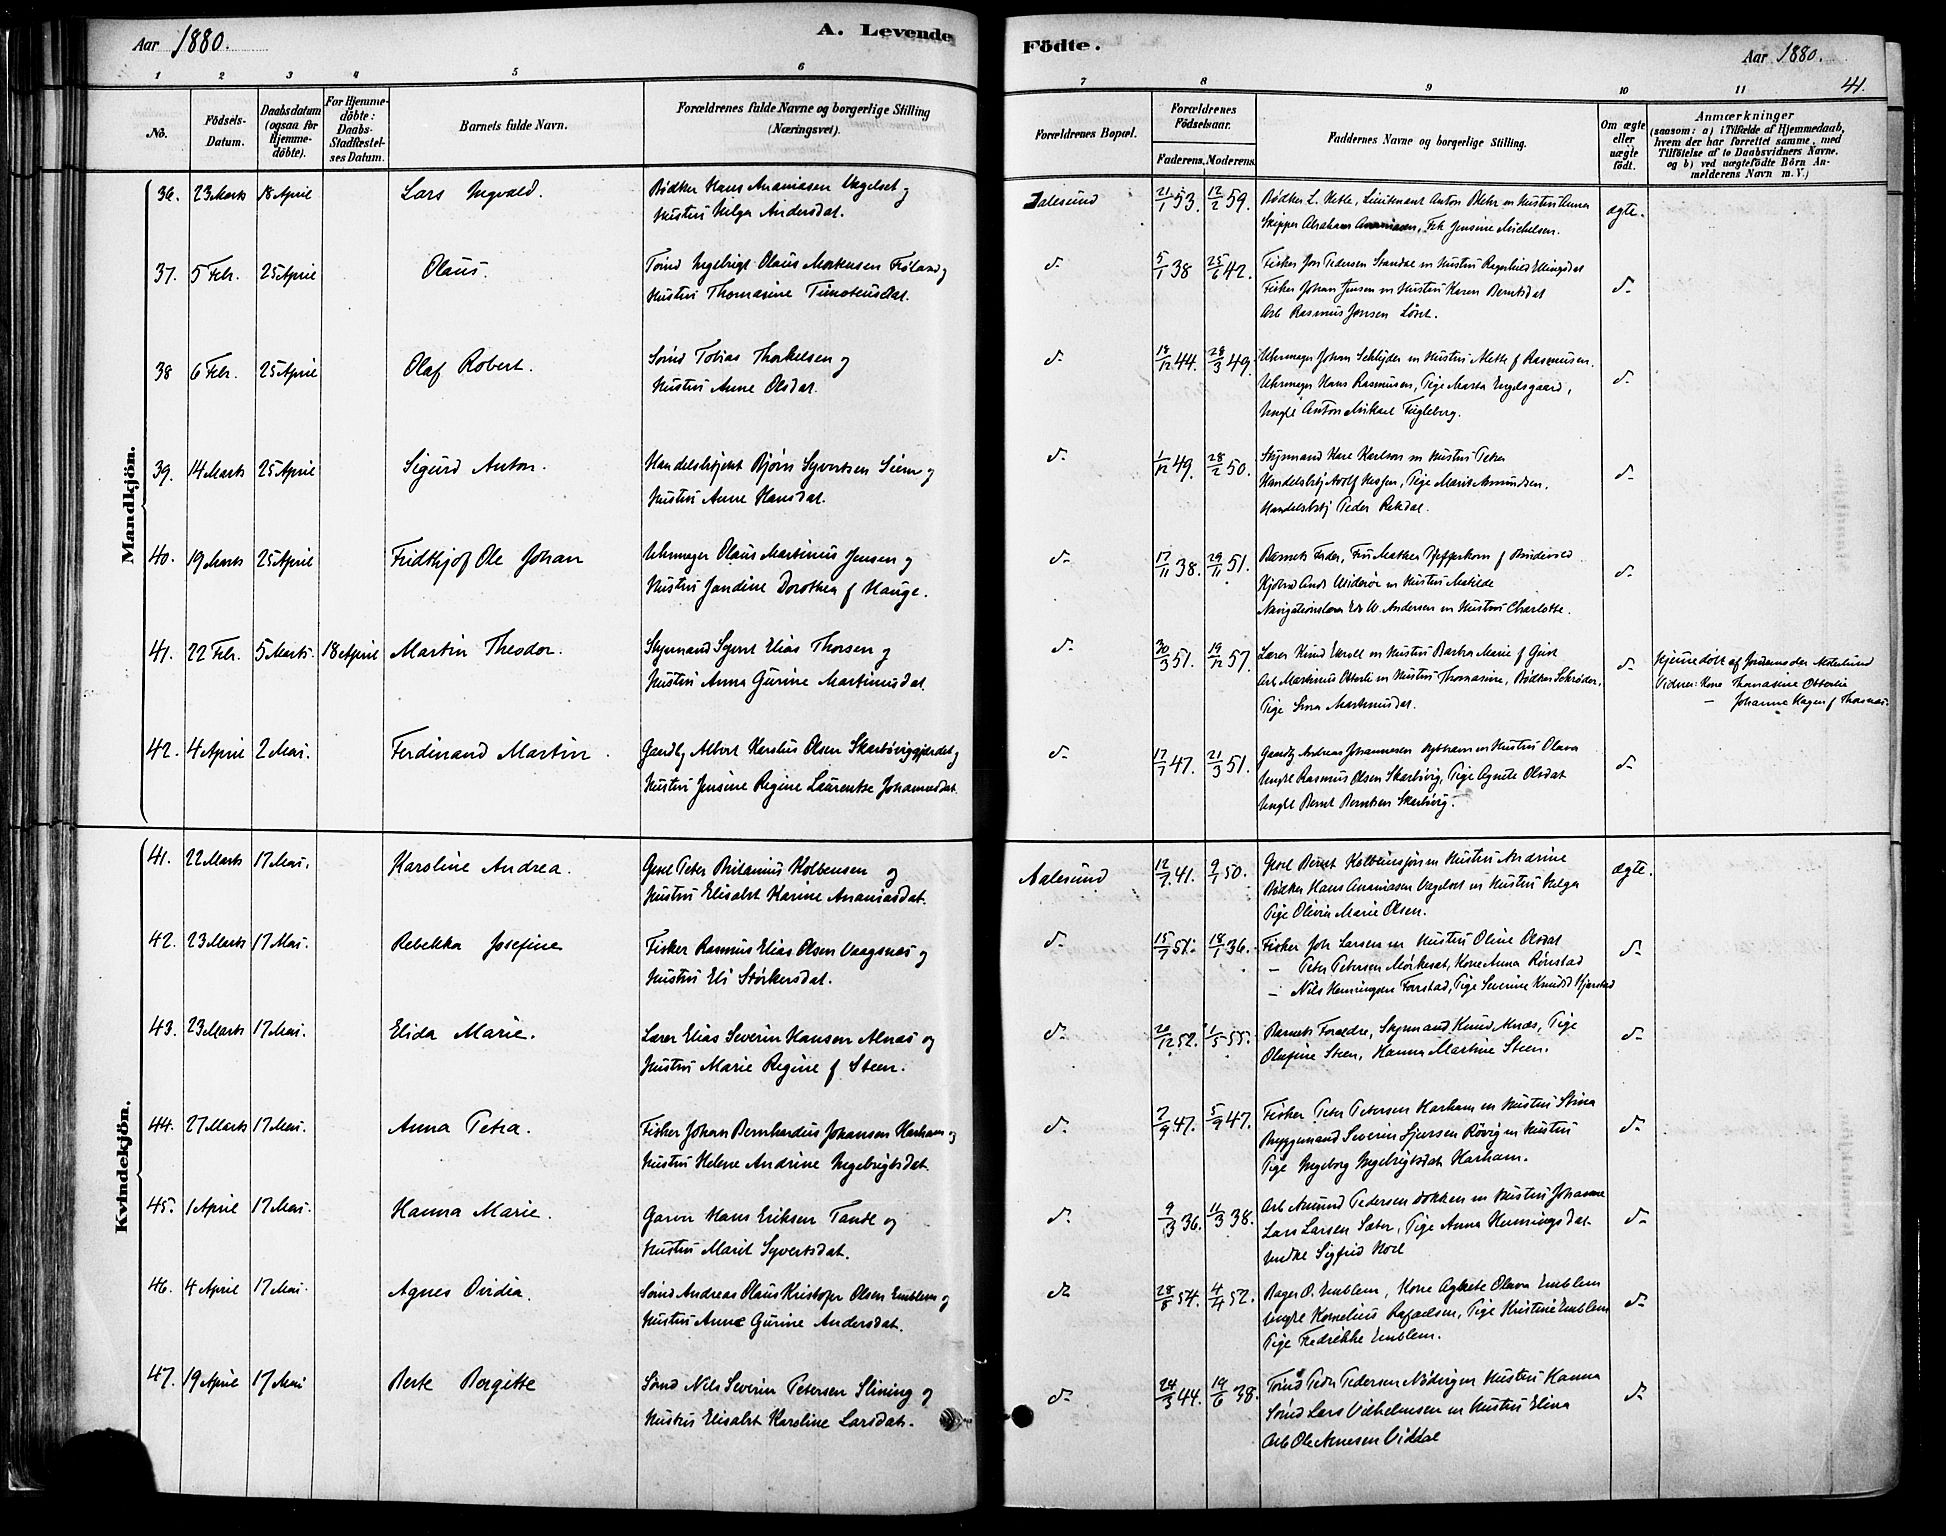 Aar 1880.
A. Levende Födte.
Aar 1880.
41.
1 2 3 4 5 6 7 8 9 10 11
No.
Födsels-Datum.
Daabsdatum (ogsaa for Hjemme-döbte).
For Hjemme-döbte: Daabs-Stadfæstel-ses Datum.
Barnets fulde Navn.
Forældrenes fulde Navne og borgerlige Stilling (Næringsvei).
Forældrenes Bopæl.
Forældrenes Födselsaar.
Faderens. Moderens.
Faddernes Navne og borgerlige Stilling.
Om ægte eller uægte födt.
Anmærkninger
(saasom: a) i Tilfælde af Hjemmedaab, hvem der har forrettet samme, med Tilföielse af to Daabsvidners Navne. og b) ved uægtefödte Börn An-melderens Navn m. V.)
Mandkjön.
36. 23 Marts 18 April Lars Ingvald. Bödker Hans Ananiasen Vegelset og
Hustru Helga Andersdat.
Aalesund 21/1 53. 12/2 59.
Skipper Abraham Ananiasen, Frk Jensine Michelsen.
ægte.
37. 5 Febr. 25 April Olaus. Tømd Ingebrigt Olaus Mortensen Frøland og
Hustru Thomasine Timoteusdat.
d. 5/1 38 25/6 42. Fisker Jon Pedersen Standal m Hustru Ragnhild Ellingsdat
Fisker Johan Jensen m Hustru Karen Berntsdat
Arb Rasmus Jensen Löset.
d.
38 6 Febr. 25 April Olaf Robert. Sömd Tobias Thorkelsen og
Hustru Anne Olsdat.
d. 18/12 44. 28/3 49. Uhrmager Johan Schlyder m Hustru Mette f Rasmusen.
Uhrmager Hans Rasmusen, Pige Marta Engelsgaard,
Ungk Anton Mikael Fugleberg.
d.
39. 14 Marts 25 April Sigurd Anton. Handelsbetjent Bjørn Syvertsen Siem og
Hustru Anne Hansdat.
d. 1/12 49. 28/2 50. Styrmand Karl Karlson m Hustru Petra
Handelsbtj Peder Rekdal.
d.
40. 19 Marts 25 April Fridthjof Ole Johan Uhrmager Olaus Martinius Jensen og
Hustru Jandine Dorothea f Hauge.
d. 17/11 38. 29/11 51.
Navigationslærer Edv W. Andersen m Hustru Charlotte.
d.
41. 22 Febr. 5 Marts. 18 April Martin Theodor. Styrmand Syvert Elias Thorsen og
Hustru Anna Gurine Martinusdat.
d. 30/3 51. 19/12 57.
Arb Martinius Otterli m Hustru Thomasine, Bödker Schröder,
d. Hjemedöbt af Jordemoder
Vidner: Kone Thomasine Otterlie
— Johanne Hagen f Thorsen.
42. 4 April 2 Mai. Ferdinand Martin. Gaardbr Albert Karolus Olsen Skarbövigsgjerdet og
Hustru Jensine Regine Laurentse Johannesdat.
d. 17/7 47. 21/3 51. Gaardbr Andreas Johannesen m Hustru Olava
Ungk Rasmus Olsen Skarbövig, Pige Agnete Olsdat
Ungk Bernt Berntsen Skarbövig.
d.
Kvindekjön.
41. 22 Marts 17 Mai. Karoline Andrea. Gesel Peter Britanius Kolbensen og
Hustru Elisabet Karine Ananiasdat.
Aalesund 12/7 41. 9/1 50. Gesel Bernt Kolbeinsjön m Hustru Andrine
Bödker Hans Ananiasen Vegelset m Hustru Helga
Pige Olivia Marie Olsen.
ægte.
42. 23 Marts 17 Mai. Rebekka Josefine Fisker Rasmus Elias Olsen Vaagsnes og
Hustru Eli Størkersdat.
d. 15/7 51. 18/1 36. Fisker Joh Larsen m Hustru Oline Olsdat
— Peter Petersen Mörkeset, Kone Anna Rönstad
— Nils Henningsen Forrstad, Pige Severine Knudsd Hjørstad
d.
43. 23 Marts 17 Mai. Elida Marie. Lærer Elias Severin Hansen Alnæs og
Hustru Marie Regine f Steen.
d. 20/12 52. 1/5 55. Barnets Forældre, Styrmand Knud Alnæs, Pige
Olufine Steen, Hanna Martine Steen.
d.
44. 27 Marts 17 Mai. Anna Petra. Fisker Johan Bernhardus Johansen Harham og
Hustru Helene Andrine Ingebrigtsdat.
d. 2/9 47. 5/9 47. Fisker Peter Petersen Harham m Hustru Stina
Byggemand Severin Sjursen Rövig m Hustru
Pige Ingeborg Ingebrigtsdat Harham.
d.
45. 1 April 17 Mai. Hanna Marie. Garver Hans Eriksen Tande og
Hustru Marit Syvertsdat.
d. 9/3 36. 11/3 38. Arb Amund Pedersen Dokken m Hustru Johanne
Lars Larsen Sæter, Pige Anna Henningsdat
Enke Sigfrid Moe
d.
46. 4 April 17 Mai. Agnes Ovidia. Sömd Andreas Olaus Kristofer Olsen Emblem og
Hustru Anne Gurine Andersdat.
d. 28/8 54. 4/4 52. Bager O. Emblem, Kone Agnete Olava Emblem
Ungk Kornelius Rafaelsen, Pige Kristine Emblem
Pige Fredrikke Emblem.
d.
47. 19 April 17 Mai Berte Bergitte Sömd Nils Severin Petersen Slining og
Hustru Elisabet Karoline Larsdat.
d. 24/3 44. 19/6 38. Tömd Peder Pedersen Nödvig m Hustru Hanna
Sömd Lars Vilhelmsen m Hustru Elina
Arb Ole Arnesen Viddal
d.